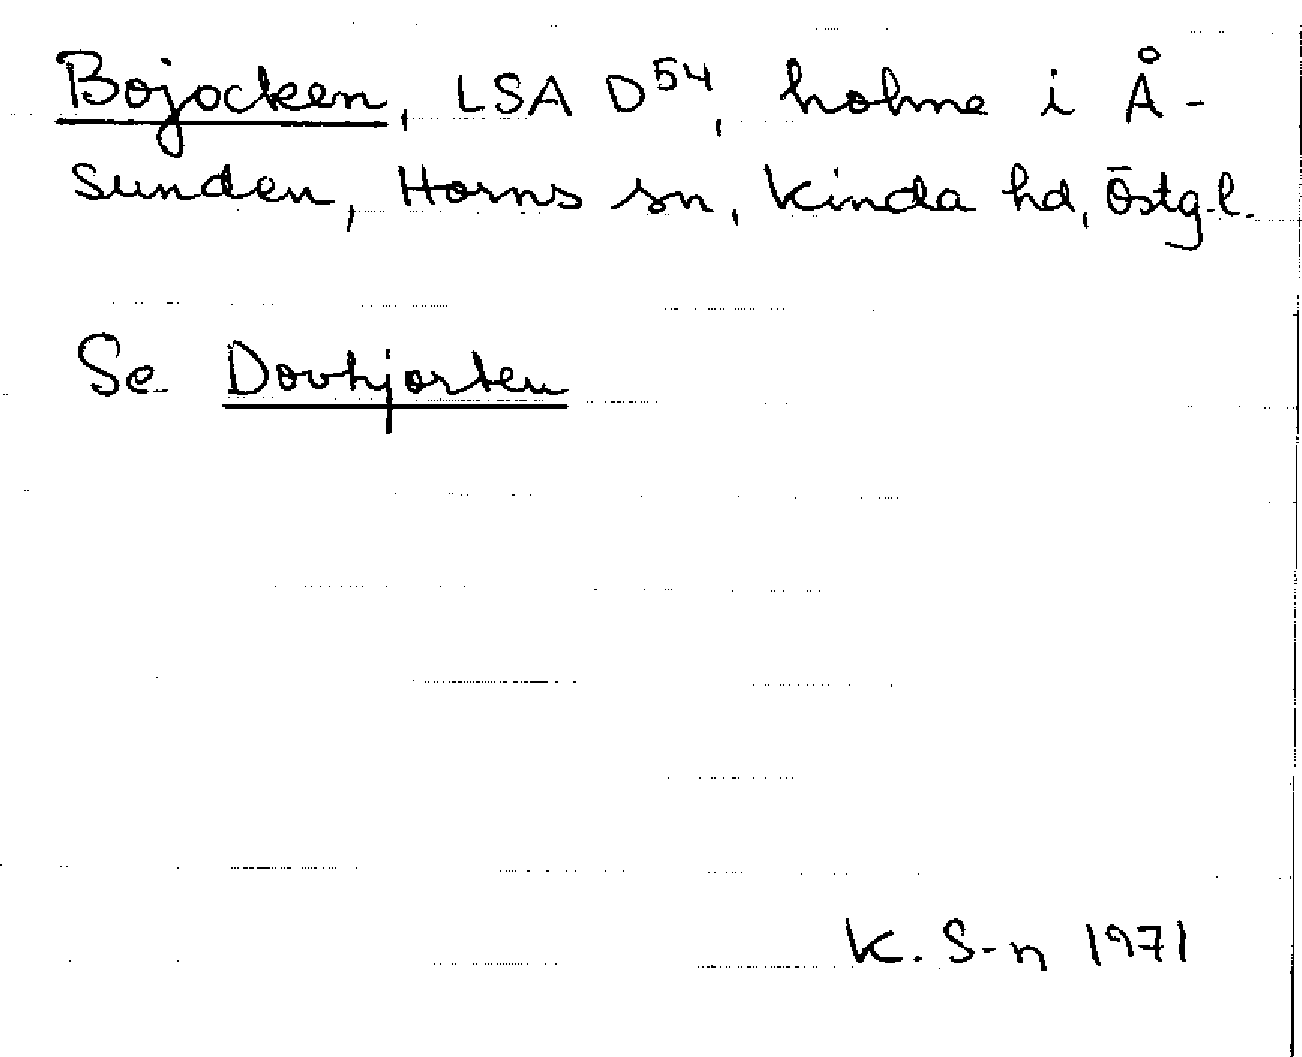 Bojocken, LSA D54, holme i Å-
sunden, Horns sn, Kinda hd, Östgl.
Se Dovhjorten
K. S-n 1971